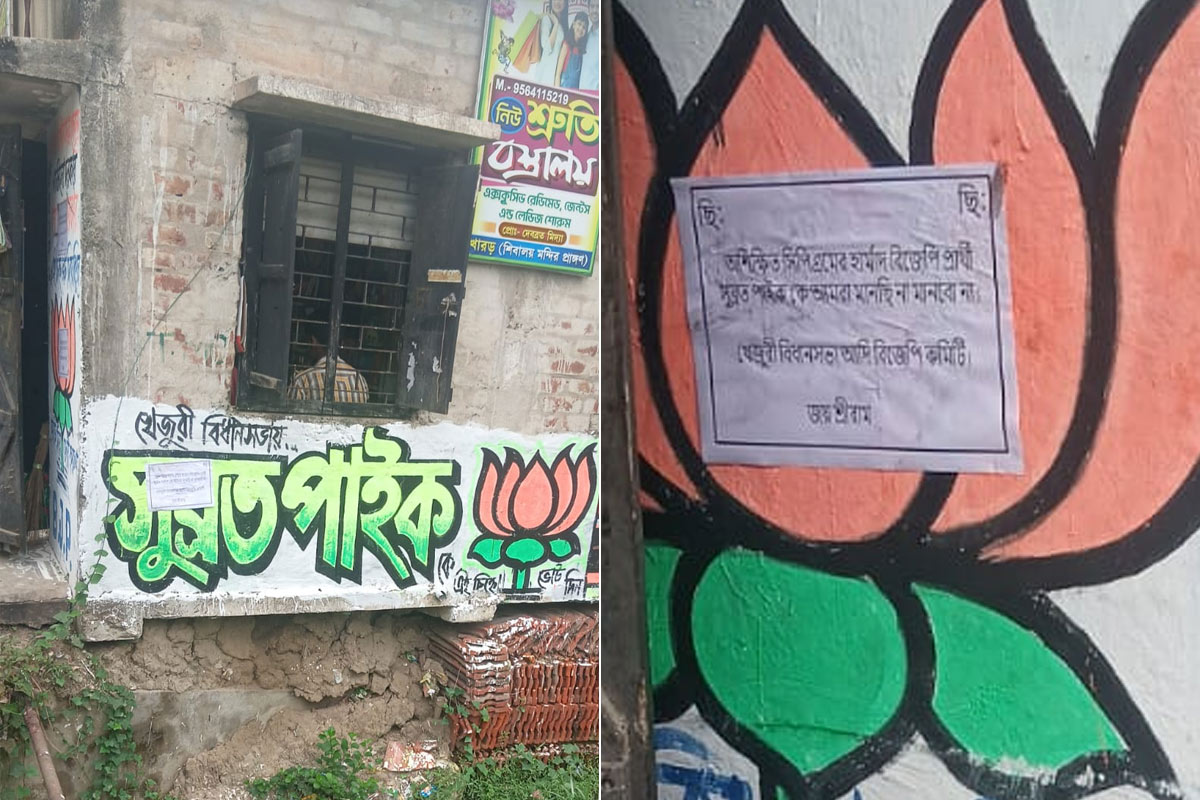 M.- 9564115219
নিউ শ্রুতি
বস্ত্রালয়
এক্সক্লুসিভ রেডিমেড, জেন্টস
এন্ড লেডিজ শোরুম
প্রোঃ- দেবব্রত মিদ্যা
(শিবালয় মন্দির প্রাঙ্গণ)
খেজুরী বিধানসভায়..
সুব্রত পাইক
কে
এই চিহ্নে
ভোট দিন
ছি: ছি:
অশিক্ষিত সিপিএমের হার্মাদ বিজেপি প্রার্থী
সুব্রত পাইক কে আমরা মানছি না মানবো না।
খেজুরী বিধানসভা আদি বিজেপি কমিটি।
জয় শ্রীরাম